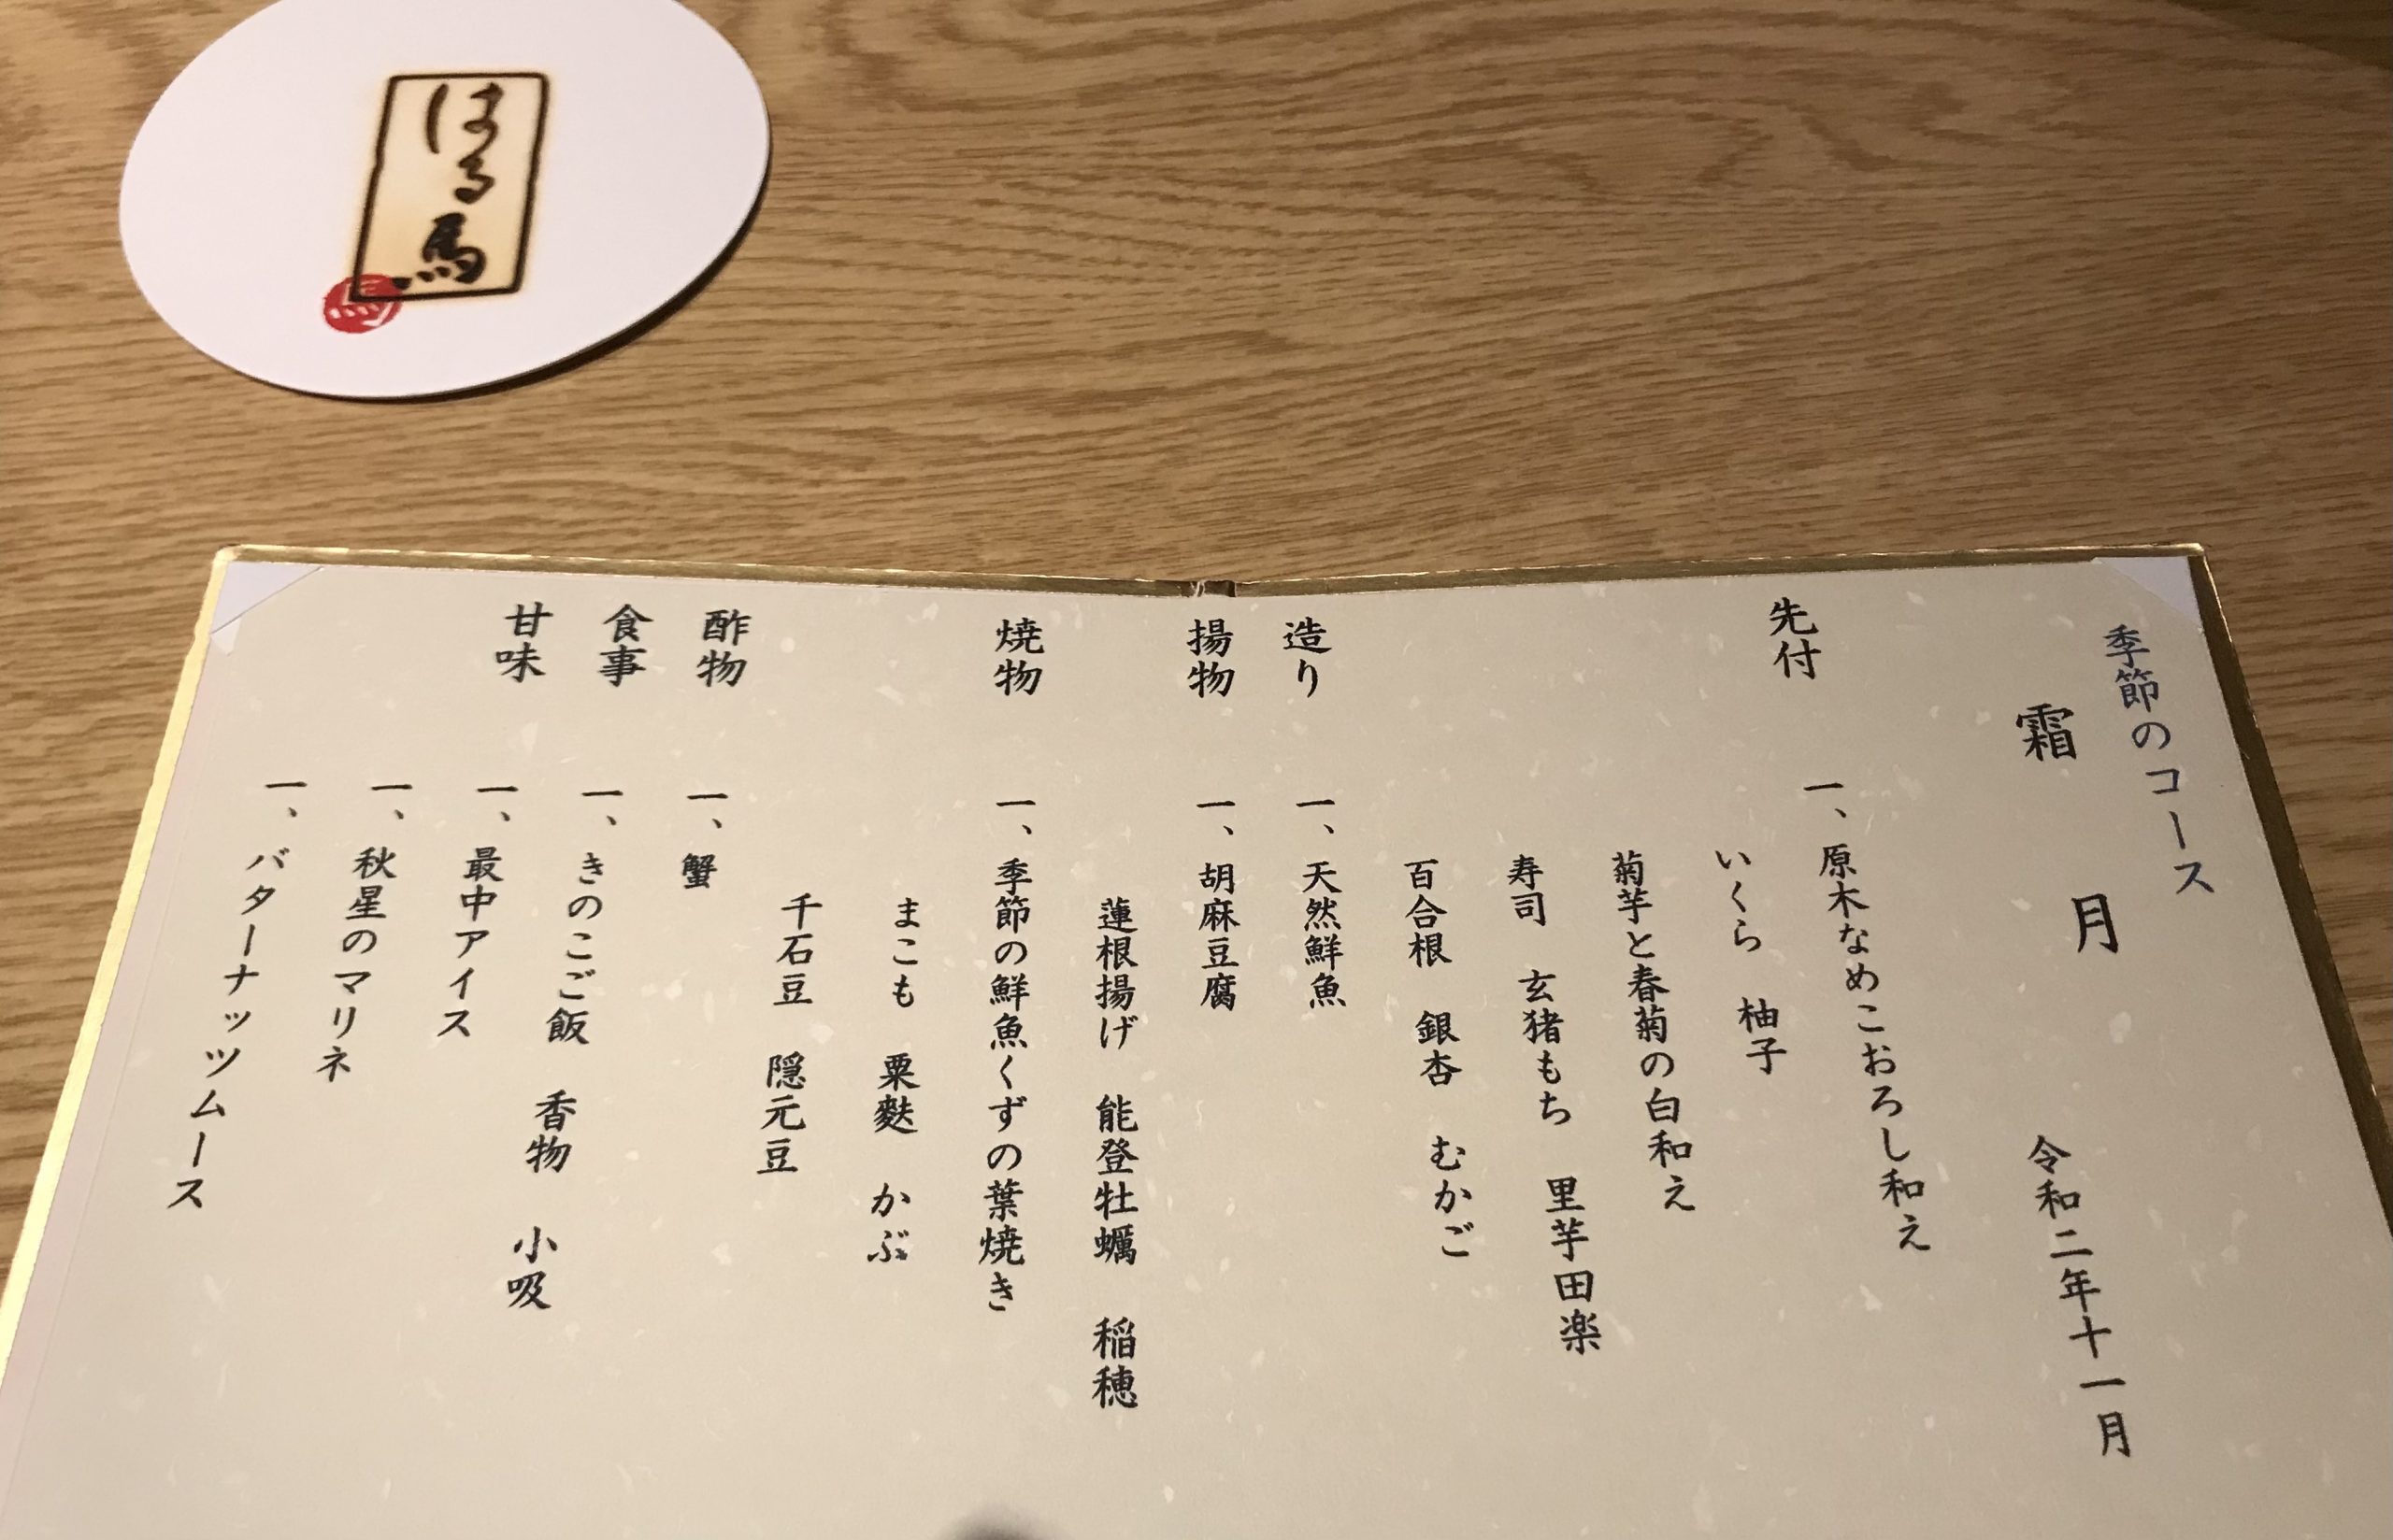 はる馬
季節のコース
霜月
令和二年十一月
先付
一、原木なめこおろし和え
いくら 柚子
菊芋と春菊の白和え
寿司 玄猪もち 里芋田楽
百合根 銀杏 むかご
造り
一、天然鮮魚
揚物
一、胡麻豆腐
蓮根揚げ 能登牡蠣 稲穂
焼物
一、季節の鮮魚くずの葉焼き
まこも 粟麩 かぶ
千石豆 隠元豆
酢物
一、蟹
食事
一、きのこご飯 香物 小吸
甘味
一、最中アイス
一、秋星のマリネ
一、バターナッツムース